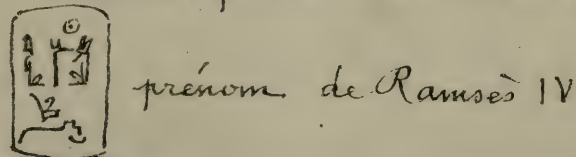 prénom de Ramsès IV